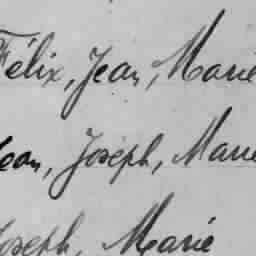 Félix, Jean, Marie
Jean, Joseph, Marie
Joseph, Marie